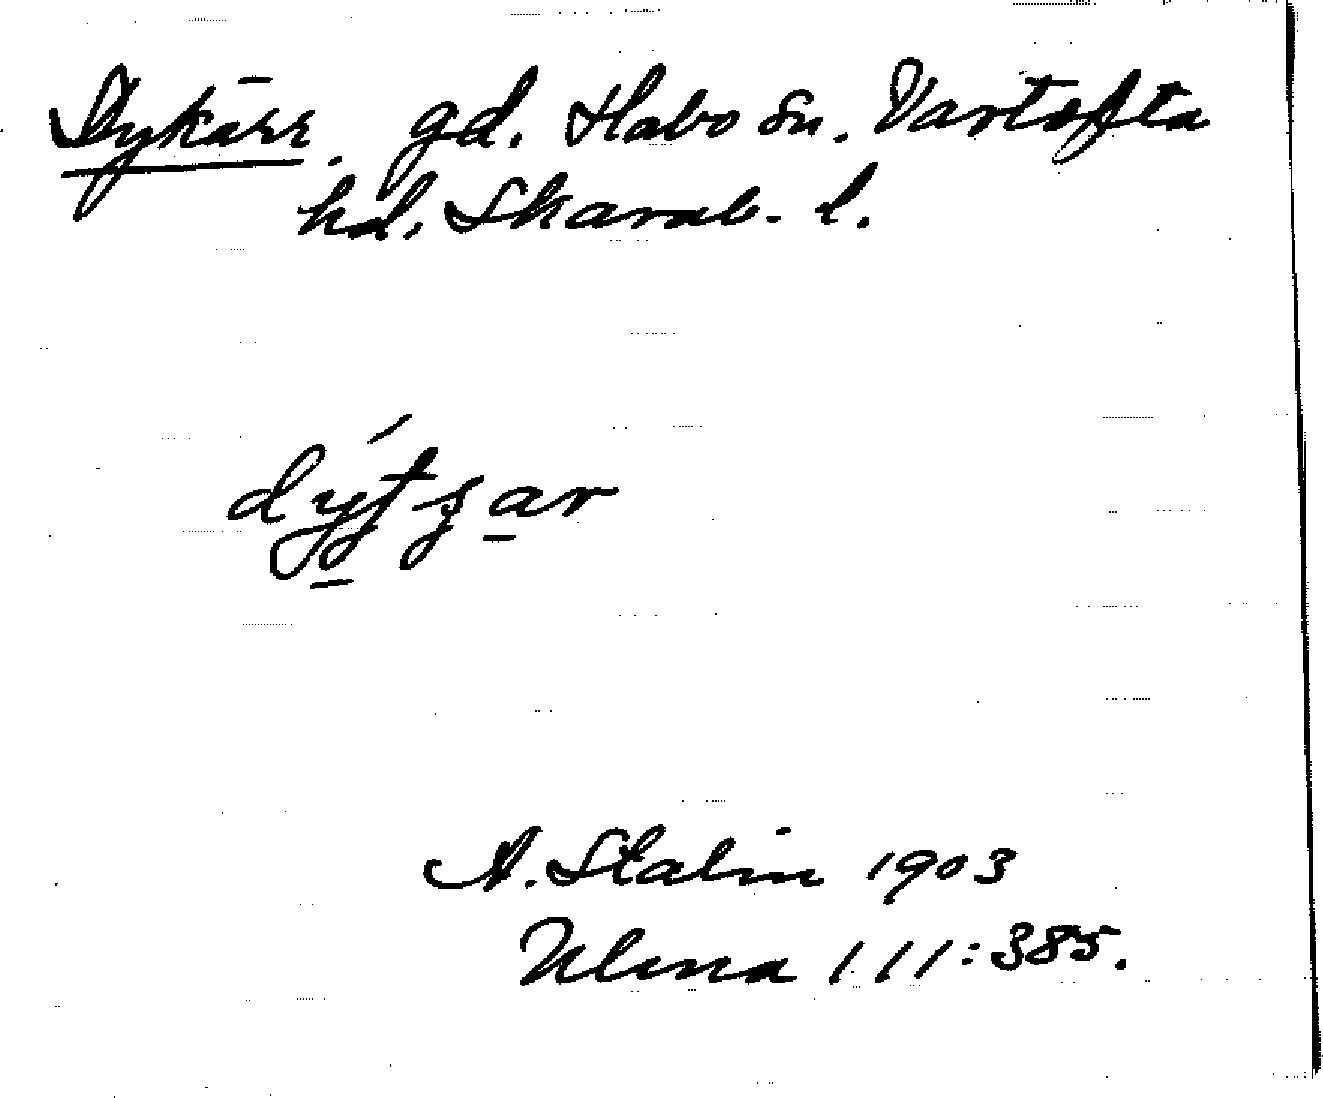 Dykärr. gd. Habo sn. Vartofta
hd. Skarab. l.
A. Stalin 1903
Ulma 111:385.